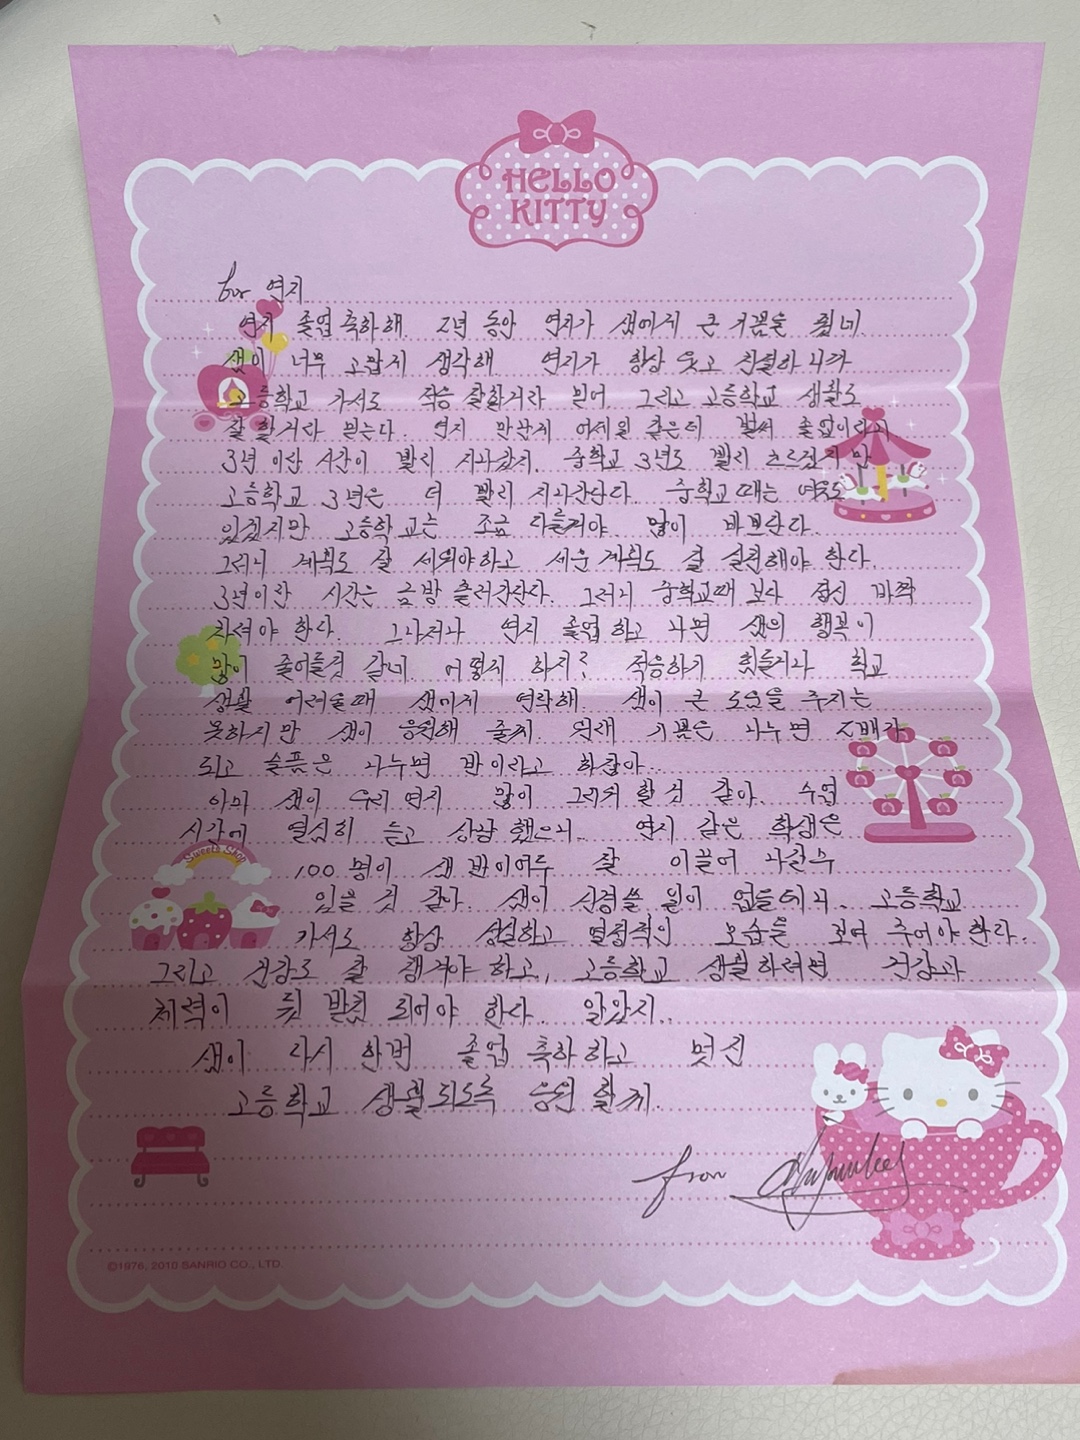 HELLO
KITTY
for 연지
연지 졸업 축하해. 2년 동안 연지가 샘에게 큰 기쁨을 줬네.
샘이 너무 고맙게 생각해 연지가 항상 웃고 친절하니까
고등학교 가서도 적응 잘할거라 믿어. 그리고 고등학교 생활도
잘 할거라 믿는다. 연지 만난게 어제일 같은데 벌써 졸업이라니
3년 이란 시간이 빨리 지나갔지. 중학교 3년도 빨리 흐르겠지만
고등학교 3년은 더 빨리 지나간단다. 중학교 때는 여유도
있겠지만 고등학교는 조금 다를거야. 많이 바쁘단다.
그러니 계획도 잘 세워야하고 세운 계획도 잘 실천해야 한다.
3년이란 시간은 금방 흘러간단다. 그러니 중학교때 보다 정신 바짝
차려야 한다. 그나저나 연지 졸업하고 나면 샘의 행복이
많이 줄어들것 같네. 어떻게 하지? 적응하기 힘들거나 학교
생활 어려울때 샘에게 연락해. 샘이 큰 도움을 주지는
못하지만 샘이 응원해 줄게. 원래 기쁨은 나누면 2배가
되고 슬픔은 나누면 반이라고 하잖아.
아마 샘이 우리 연지 많이 그리워 할 것 같아. 수업
시간에 열심히 듣고 상냥 했으니. 연지 같은 학생은
100명이 샘 반이어두 잘 이끌어 나갈수
있을 것 같아. 샘이 신경쓸 일이 없을테니. 고등학교
가서도 항상 성실하고 열정적인 모습을 보여 주어야 한다.
그리고 건강도 잘 챙겨야 하고, 고등학교 생활하려면 건강과
체력이 뒷 받침 되어야 한다. 알았지.
샘이 다시 한번 졸업 축하하고 멋진
고등학교 생활되도록 응원 할게.
from
Sweets Shop
©1976, 2010 SANRIO CO., LTD.